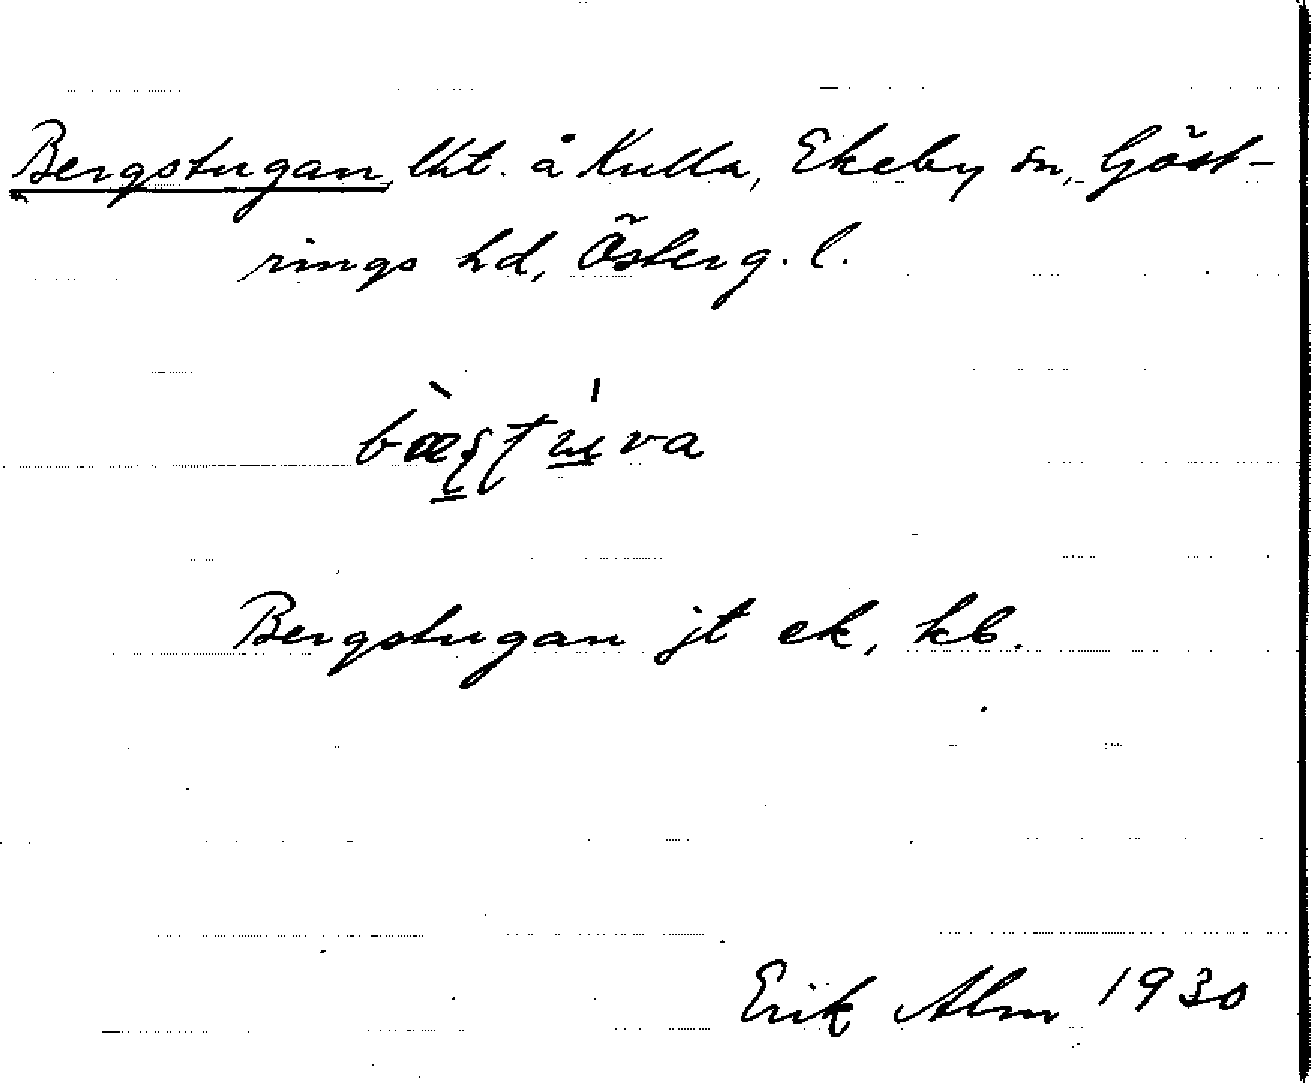 Bergstugan, lht. å Kulla, Ekeby sn, Göst-
rings hd, Österg. l.
bæ̀ʂtu̍va
Bergstugan jt ek, kb.
Erik Alm 1930